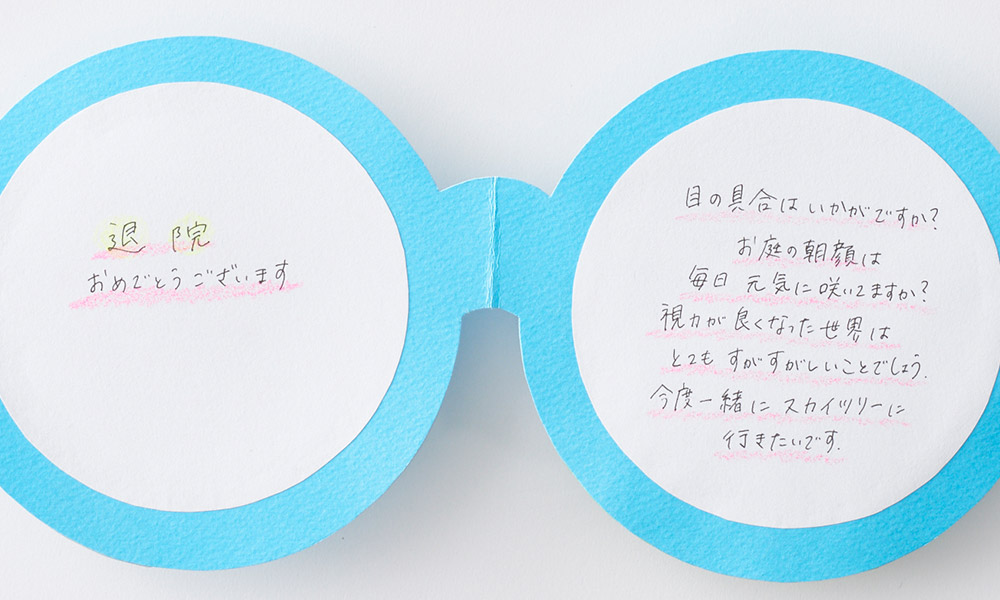 退院
おめでとうございます
目の具合はいかがですか?
お庭の朝顔は
毎日元気に咲いてますか?
視力が良くなった世界は
とてもすがすがしいことでしょう.
今度一緒にスカイツリーに
行きたいです.